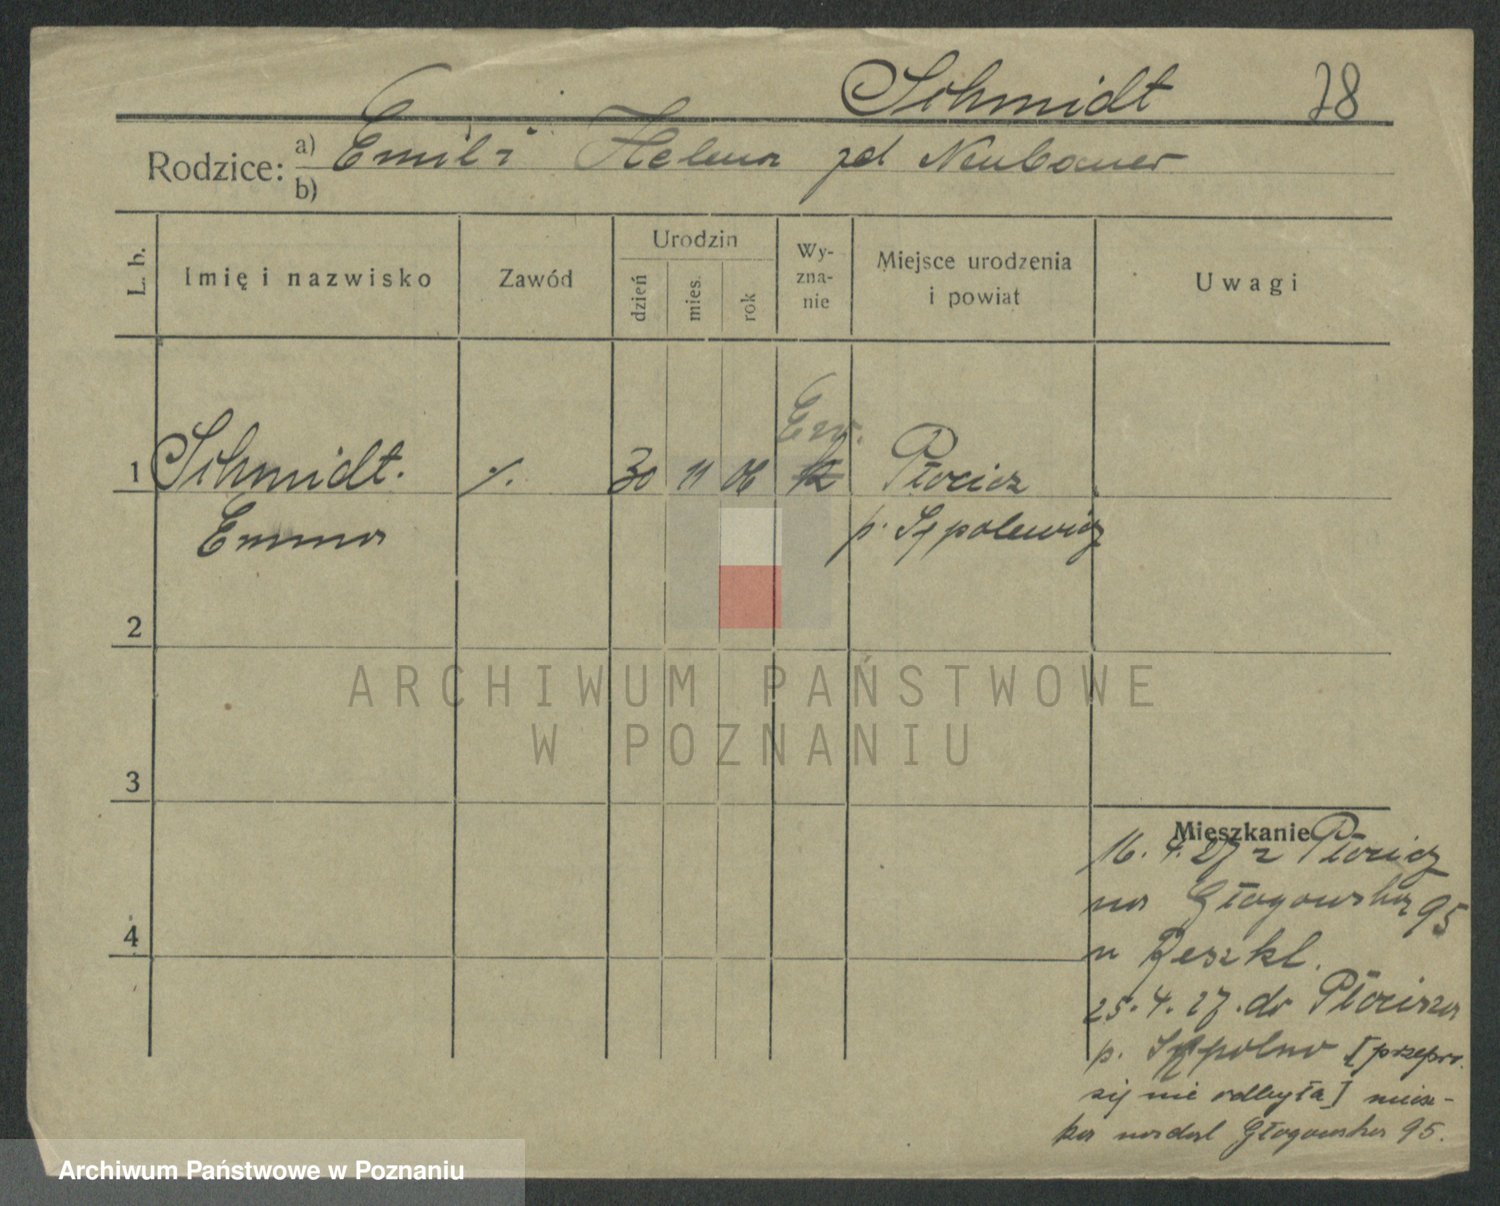 Schmidt 78
Rodzice: a) Emil i Helena zd Neubauer
b)
L. b. Imię i nazwisko Zawód Urodzin dzień mies. rok Wy-zna-nie Miejsce urodzenia i powiat Uwagi
Ew.
1 Schmidt. ./. 30 11 06 k Płocicz
Emma p. Sępolewicz
2
ARCHIWUM PAŃSTWOWE
W POZNANIU
3
Mieszkanie
16. 4. 27 z Płocicz
na Głogowska 95
u Beszkl.
4
25. 4. 27. do Płocicza
p. Sępolno [przepr.
się nie odbyła] miesz-
ka nadal Głogowska 95.
Archiwum Państwowe w Poznaniu